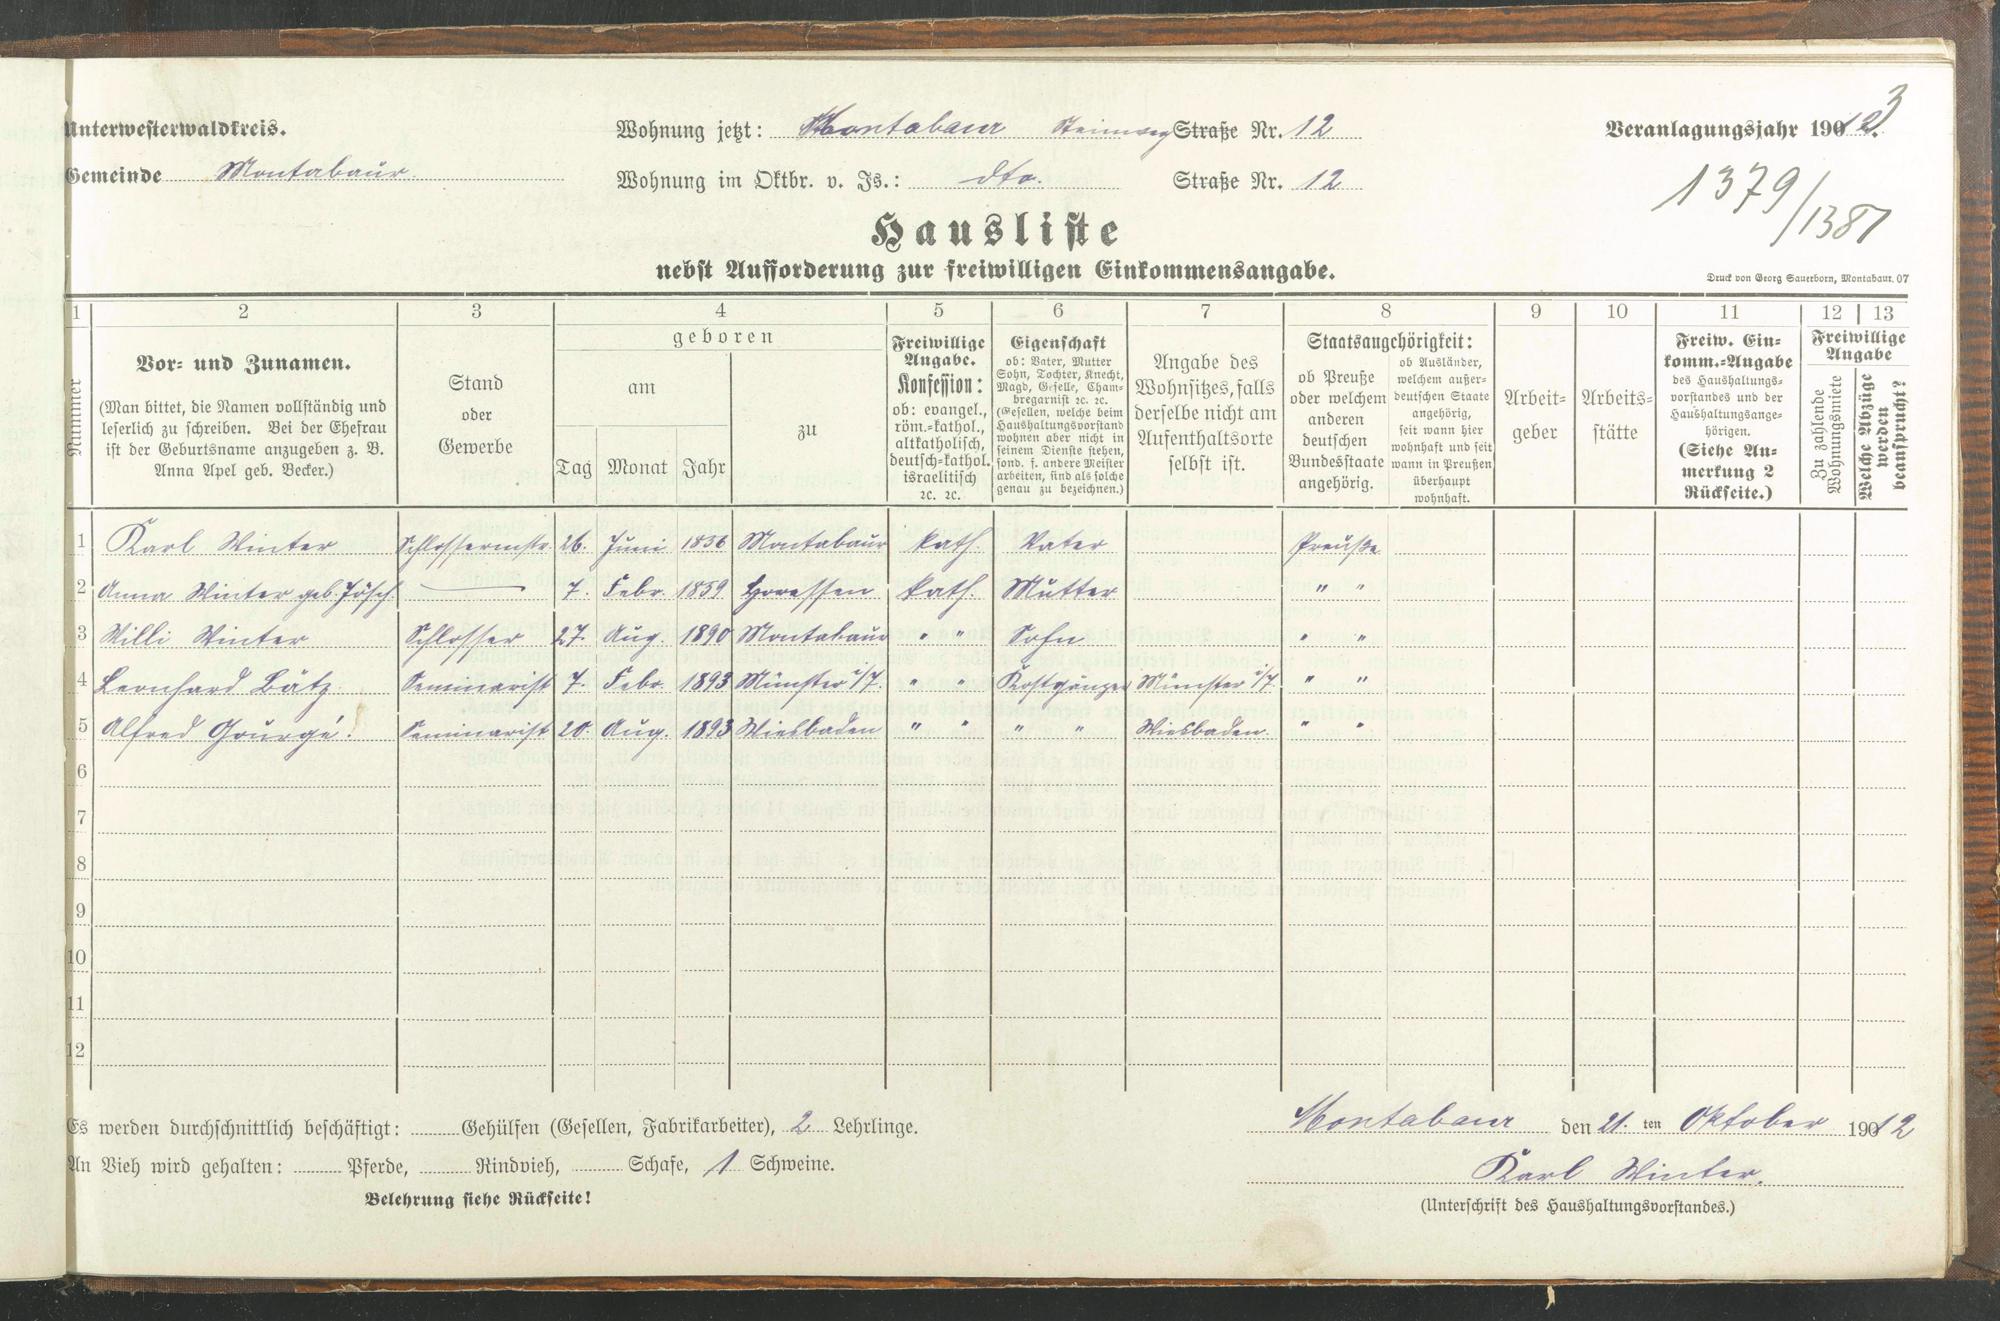 Unterwesterwaldkreis.
Wohnung jetzt: Montabaur Steinweg Straße Nr. 12
Veranlagungsjahr 1912. 3
Gemeinde Montabaur.
Wohnung im Oktbr. v. Js.: dto. Straße Nr. 12
1379/1381
Hausliste
nebst Aufforderung zur freiwilligen Einkommensangabe.
Druck von Georg Sauerborn, Montabaur. 07
1 2 3 4 5 6 7 8 9 10 11 12 13
Nummer
Vor- und Zunamen.
(Man bittet, die Namen vollständig und
leserlich zu schreiben. Bei der Ehefrau
ist der Geburtsname anzugeben z. B.
Anna Apel geb. Becker.)
Stand
oder
Gewerbe
geboren
am
Tag Monat Jahr
zu
Freiwillige
Angabe.
Konfession:
ob: evangel.,
röm.-kathol.,
altkatholisch,
deutsch-kathol.
israelitisch
2c. 2c.
Eigenschaft
ob: Vater, Mutter
Sohn, Tochter, Knecht,
Magd, Geselle, Cham-
bregarnist 2c. 2c.
(Gesellen, welche beim
Haushaltungsvorstand
wohnen aber nicht in
seinem Dienste stehen,
sond. f. andere Meister
arbeiten, sind als solche
genau zu bezeichnen.)
Angabe des
Wohnsitzes, falls
derselbe nicht am
Aufenthaltsorte
selbst ist.
Staatsangehörigkeit:
ob Preuße
oder welchem
anderen
deutschen
Bundesstaate
angehörig.
ob Ausländer,
welchem außer-
deutschen Staate
angehörig,
seit wann hier
wohnhaft und seit
wann in Preußen
überhaupt
wohnhaft.
Arbeit-
geber
Arbeits-
stätte
Freiw. Ein-
komm.-Angabe
des Haushaltungs-
vorstandes und der
Haushaltungsange-
hörigen.
(Siehe An-
merkung 2
Rückseite.)
Freiwillige
Angabe
Zu zahlende
Wohnungsmiete
Welche Abzüge
werden
beansprucht?
1 Karl Winter Schlossermstr. 26. Juni 1856 Montabaur kath. Vater Preuße
2 Anna Winter geb. Jösch. 7. Febr. 1859 Horessen kath. Mutter " "
3 Willi Winter Schlosser 27. Aug. 1890 Montabaur " " Sohn " "
4 Leonhard Bätz. Seminarist 7. Febr. 1893 Münster i/T. " " Kostgänger Münster i/T. " "
5 Alfred Gourgé. Seminarist 20. Aug. 1893 Wiesbaden " " " " Wiesbaden. " "
6
7
8
9
10
11
12
Es werden durchschnittlich beschäftigt: Gehülfen (Gesellen, Fabrikarbeiter), 2 Lehrlinge.
An Vieh wird gehalten: Pferde, Rindvieh, Schafe, 1 Schweine.
Belehrung siehe Rückseite!
Montabaur den 21. ten Oktober 1912
Karl Winter.
(Unterschrift des Haushaltungsvorstandes.)